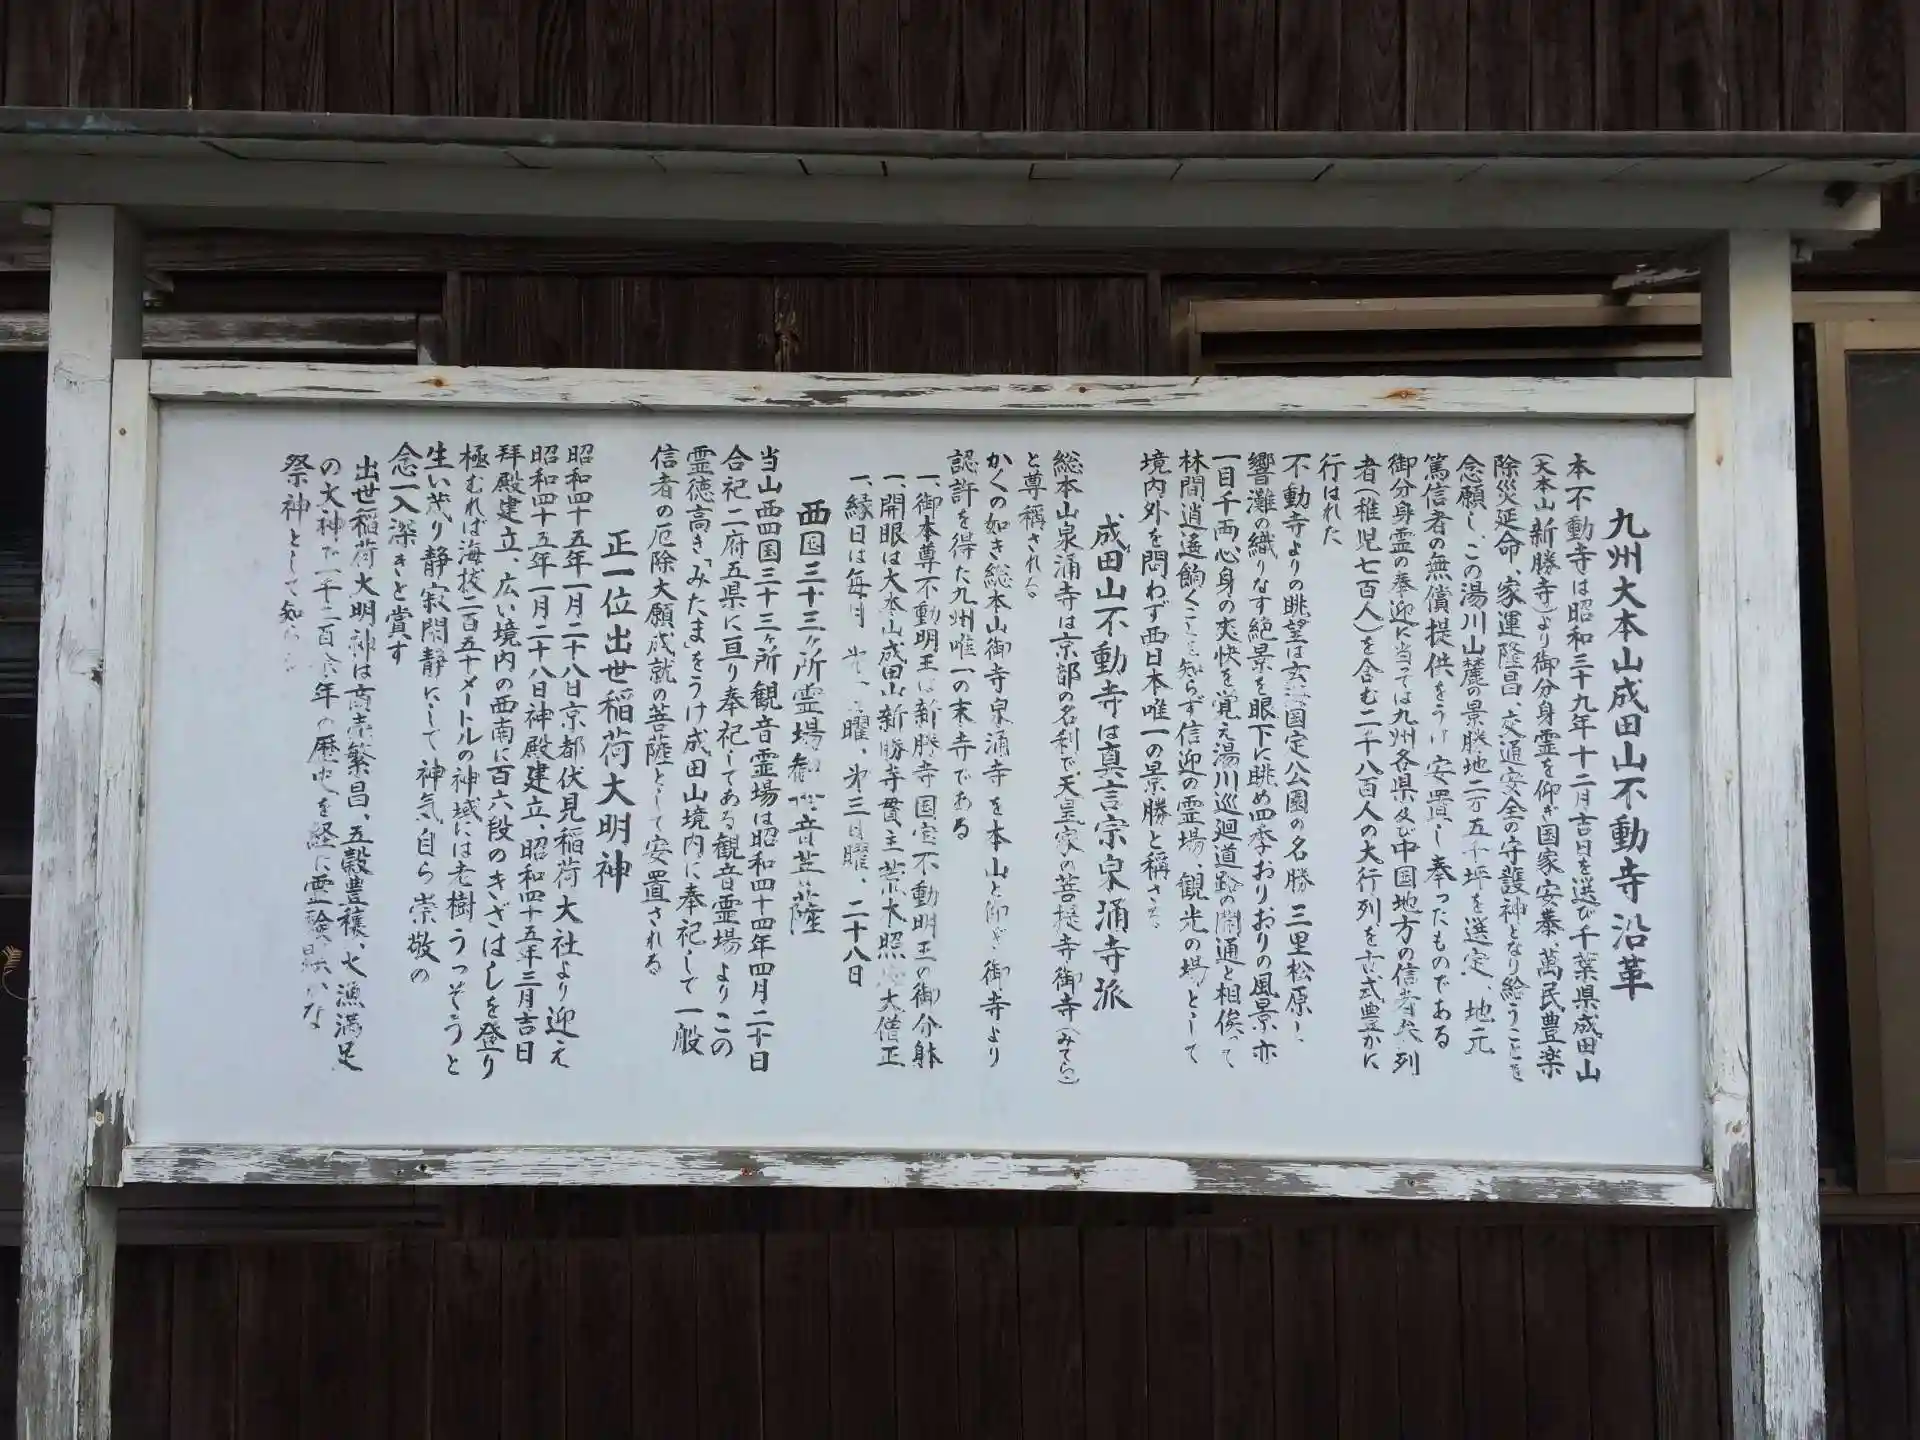 九州大本山成田山不動寺沿革
本不動寺は昭和三十九年十二月吉日を選び千葉県成田山
(大本山新勝寺)より御分身霊を仰ぎ国家安泰、萬民豊楽
除災延命、家運隆昌、交通安全の守護神となり給うことを
念願し、この湯川山麓の景勝地二万五千坪を選定、地元
篤信者の無償提供をうけ安置し奉ったものである
御分身霊の奉迎に当っては九州各県及び中国地方の信者長列
者(稚児七百人)を含む二千八百人の大行列を古式豊かに
行はれた
不動寺よりの眺望は玄海国定公園の名勝三里松原し
響灘の織りなす絶景を眼下に眺め四季おりおりの風景亦
一目千両心身の爽快を覚え湯川巡廻道路の開通と相俟って
林間逍遙飽くことを知らず信迎の霊場、観光の場として
境内外を問わず西日本唯一の景勝と称さる
成田山不動寺は真言宗泉涌寺派
総本山泉涌寺は京都の名刹で天皇家の菩提寺御寺(みてら)
と尊稱される
かくの如き総本山御寺泉涌寺を本山と仰ぎ御寺より
認許を得た九州唯一の末寺である
一、御本尊不動明王は新勝寺国宝不動明王の御分躰
一、開眼は大本山成田山新勝寺貫主荒木照 大僧正
一、縁日は毎月 第一日曜、第三日曜、二十八日
西国三十三ヶ所霊場観世音菩薩
当山西国三十三ヶ所観音霊場は昭和四十四年四月二十日
合祀二府五県に亘り奉祀してある観音霊場よりこの
霊徳高き「みたま」をうけ成田山境内に奉祀して一般
信者の厄除大願成就の菩薩として安置される
正一位出世稲荷大明神
昭和四十五年一月二十八日京都伏見稲荷大社より迎え
昭和四十五年一月二十八日神殿建立、昭和四十五年三月吉日
拜殿建立、広い境内の西南に百六段のきざはしを登り
極むれば海抜二百五十メートルの神域には老樹うっそうと
生い茂り静寂閑静にして神気自ら崇敬の
念一入深きと賞す
出世稲荷大明神は商売繁昌、五穀豊穣、火漁満足
の大神で一千二百余年の歴史を経に霊験顕かな
祭神として知ら